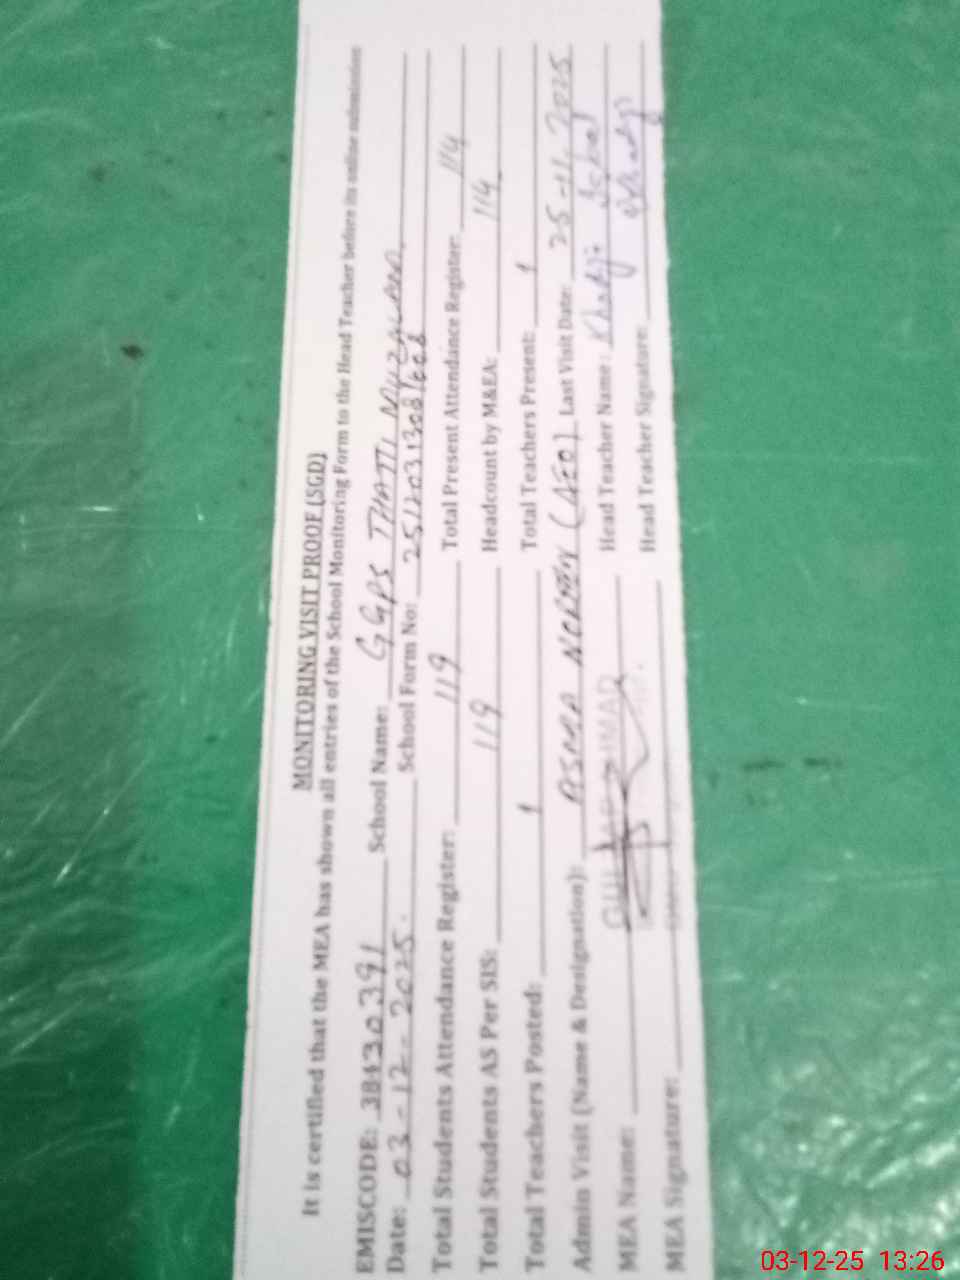 MONITORING VISIT PROOF (SGD)
It is certified that the MEA has shown all entries of the School Monitoring Form to the Head Teacher before its online submission
EMISCODE: 38430391 School Name: GGPS THATTI
Date: 03-12-2025. School Form No:
Total Students Attendance Register: 119 Total Present Attendance Register: 114
Total Students AS Per SIS: 119 Headcount by M&EA: 114
Total Teachers Posted: 1 Total Teachers Present: 1
Admin Visit (Name & Designation): ASMA (AEO) Last Visit Date: 25-11-2025
MEA Name: Head Teacher Name:
MEA Signature: Head Teacher Signature:
03-12-25 13:26